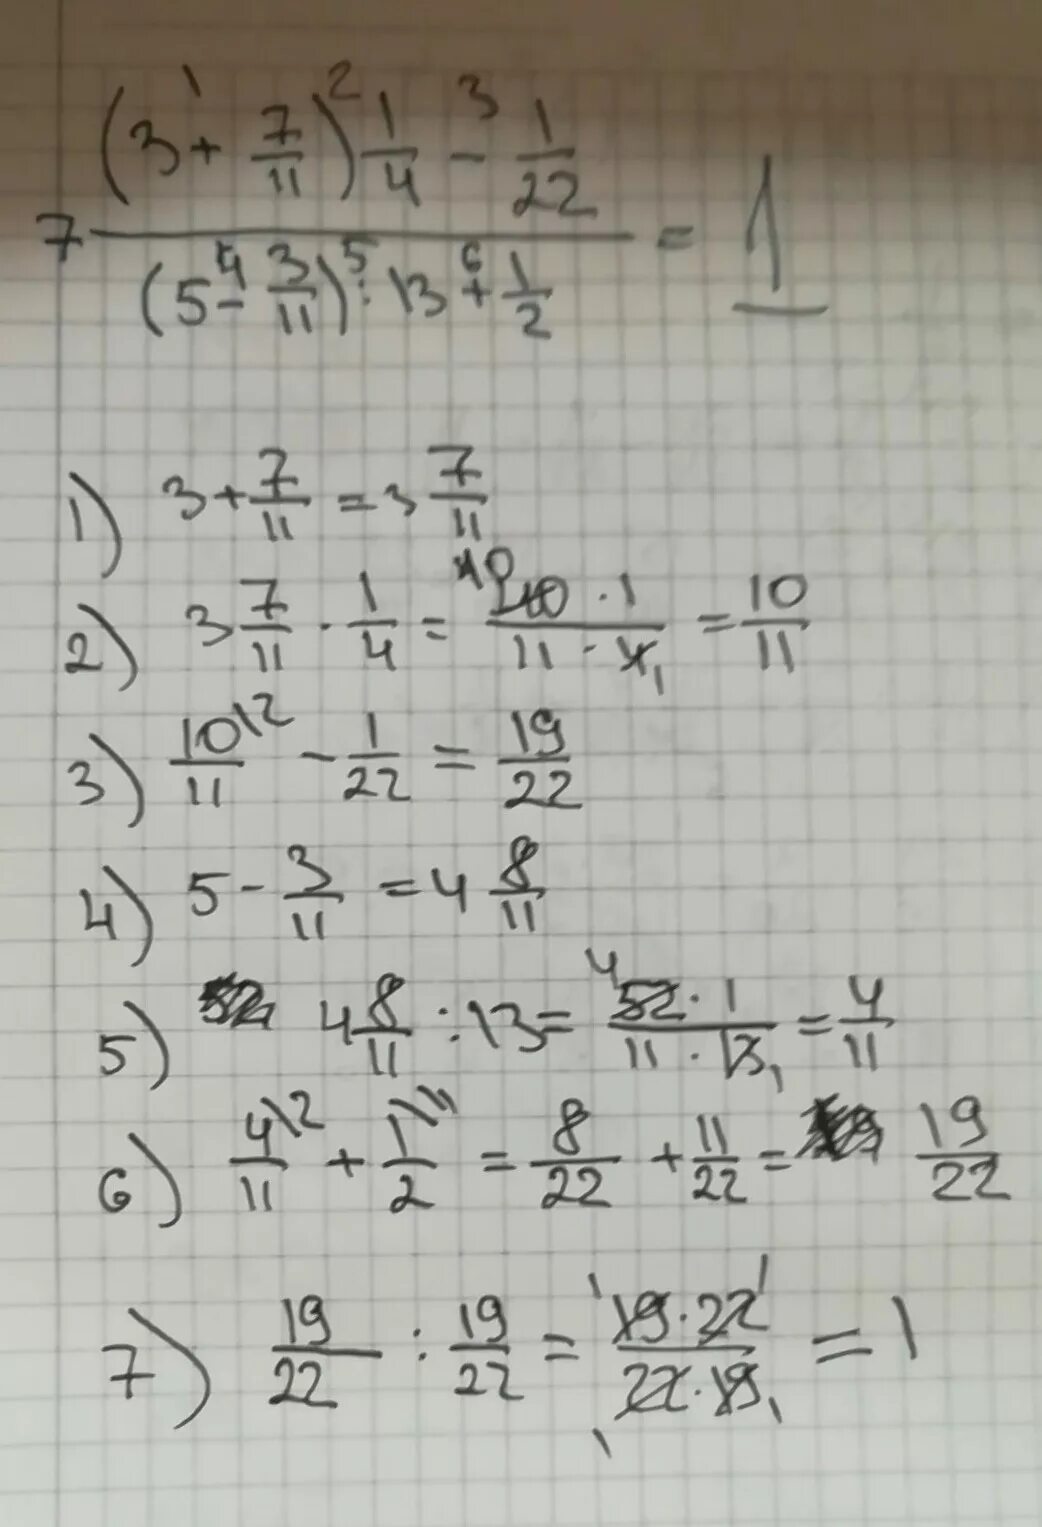 7 ((3 +¹ 7/11)² 1/4 -³ 1/22) / ((5 -⁴ 3/11) :⁵ 13 +⁶ 1/2) = 1
1) 3 + 7/11 = 3 7/11
2) 3 7/11 · 1/4 = 40 10 · 1 / 11 · 4 1 = 10/11
3) 10\2/11 - 1/22 = 19/22
4) 5 - 3/11 = 4 8/11
5) 4 8/11 : 13 = 4 52 · 1 / 11 · 13 1 = 4/11
6) 4\2/11 + 1\11/2 = 8/22 + 11/22 = 19/22
7) 19/22 : 19/22 = 1 19 · 22 1 / 1 22 · 19 1 = 1